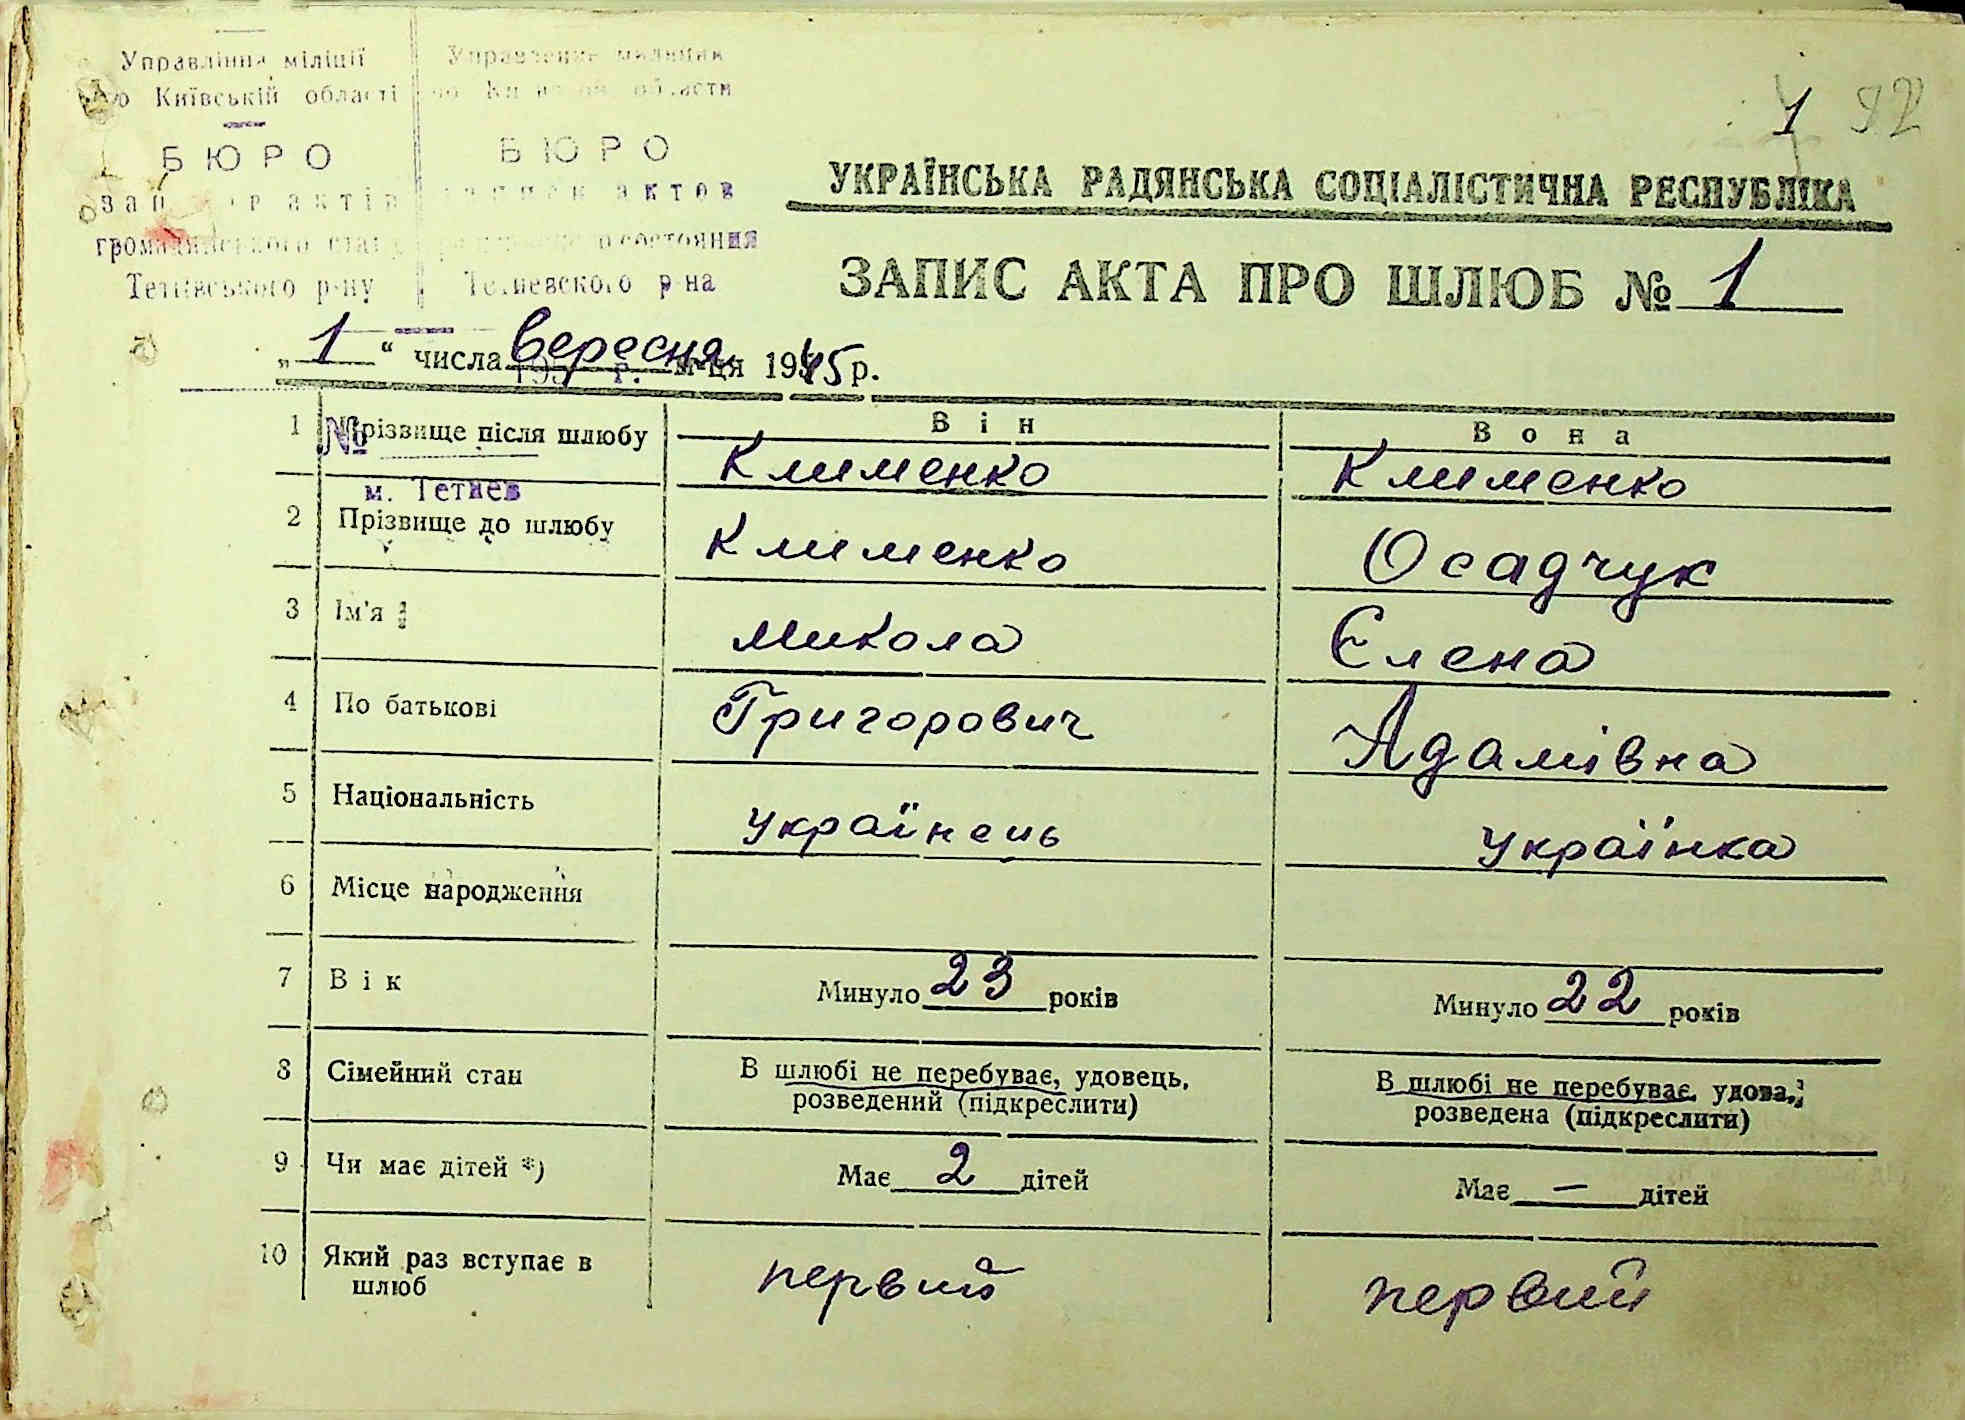 Управління міліції
по Київській області
БЮРО
актів
громадянського стану
Тетіївського р-ну
Управление милиции
по области
БЮРО
записи актов
гражданского состояния
Тетиевского р-на
195 г.
№
м. Тетиев
1 92
УКРАЇНСЬКА РАДЯНСЬКА СОЦІАЛІСТИЧНА РЕСПУБЛІКА
ЗАПИС АКТА ПРО ШЛЮБ № 1
„1“ числа вересня м-ця 1945 р.
Він Вона
1 Прізвище після шлюбу Клименко Клименко
2 Прізвище до шлюбу Клименко Осадчук
3 Ім'я Микола Єлена
4 По батькові Григорович Адамівна
5 Національність українець українка
6 Місце народження
7 Вік Минуло 23 років Минуло 22 років
8 Сімейний стан В шлюбі не перебуває, удовець, В шлюбі не перебуває, удова,
розведений (підкреслити) розведена (підкреслити)
9 Чи має дітей *) Має 2 дітей Має — дітей
10 Який раз вступає в первий первий
шлюб